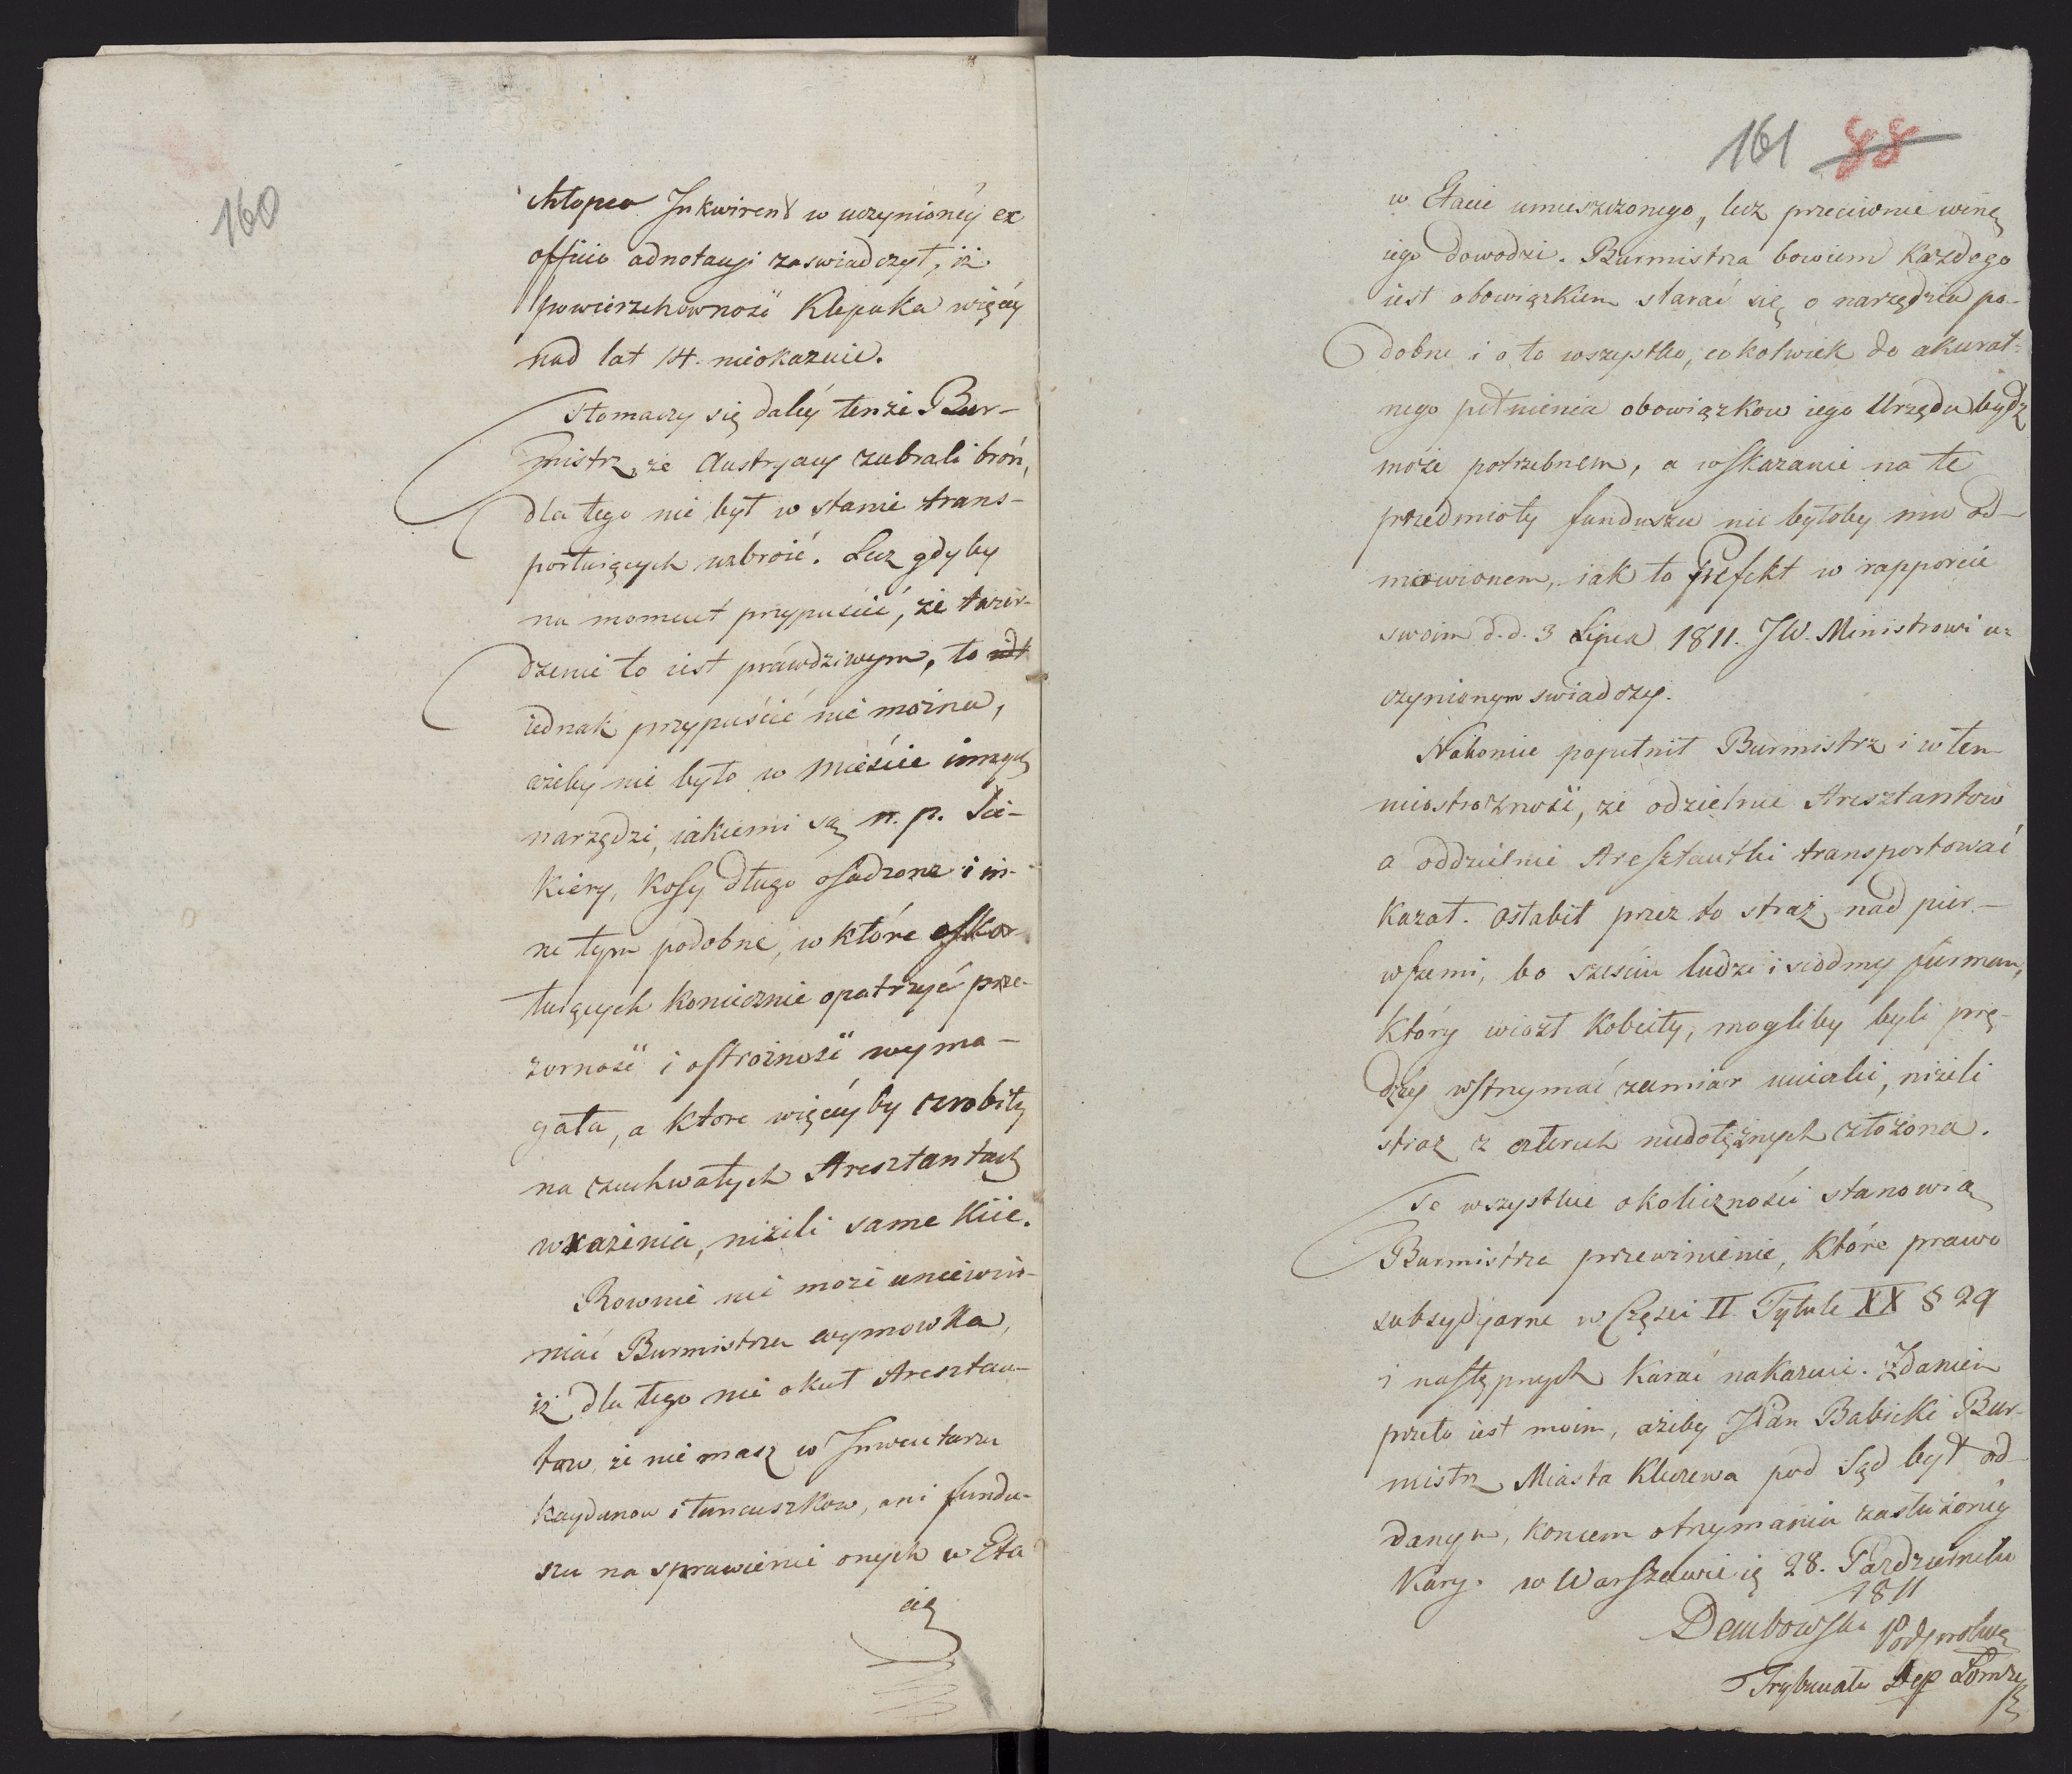 160
chłopca Inkwirent w uczynionéy ex
officio adnotacyi zaswiadczył, iż
powierzchowność Klepaka więcéy
nad lat 14. nieokazuie.
Tłomaczy się daléy tenże Bur-
mistrz, że Austryacy zabrali broń,
dla tego nie był w stanie trans-
portuiących uzbroić. Lecz gdyby
na moment przypuścić, że twier-
dzenie to iest prawdziwym, to
iednak przypuścić nie można,
ażeby nie było w mieście innych
narzędzi, iakiemi są n. p. Sie-
kiery, Kosy długo osadzone i in-
ne tym podobne, w które eskor-
tuiących koniecznie opatrzyć prze-
zorność i ostrożność wyma-
gała, a ktore więcéy by zrobiły
na zuchwałych Aresztantach
wrażenia, niżeli same Kiie.
Rownie nie może uniewin-
niać Burmistrza wymowka,
iż dla tego nie okuł Aresztan-
tow, że nie masz w Inwentarzu
kaydanow i łancuszkow, ani fundu-
szu na sprawienie onych w Eta
cie
161 88
w Etacie umieszczonego, lecz przeciwnie winę
iego dowodzi. Burmistrza bowiem każdego
iest obowiązkiem starać się o narzędzia po-
dobne i o to wszystko, co kolwiek do akurat-
nego pełnienia obowiązkow iego Urzędu bydz
może potrzebnem, a wskazanie na te
przedmioty funduszu nie byłoby mu od-
mowionem, iak to Prefekt w rapporcie
swoim d. d. 3 Lipca 1811. JW. Ministrowi u-
czynionym swiadczy.
Nakoniec popełnił Burmistrz i w ten
nieostrożność, że odzielnie Aresztantow
a oddzielnie Aresztantki transportować
kazał. Osłabił przez to straż nad pier-
wszemi, bo sześciu ludzi i siodmy furman,
który wiozł Kobiety, mogliby byli prę-
dzey wstrzymać zamiar ucieczki, niżeli
straż z czterech niedołężnych złożona.
Te wszystkie okoliczności stanowią
Burmistrza przewinienie, które prawo
subsydyarne w Częsci II. Tytule XX § 29
i następnych karać nakazuie. Zdaniem
przeto iest moim, ażeby JPan Babicki Bur-
mistrz Miasta Kleczewa pod Sąd był od-
danym, koncem otrzymania zasłużonéy
Kary. w Warszawie 28. Pazdziernika
1811
Dembowski Podprokur
Trybunału Dep Łomży